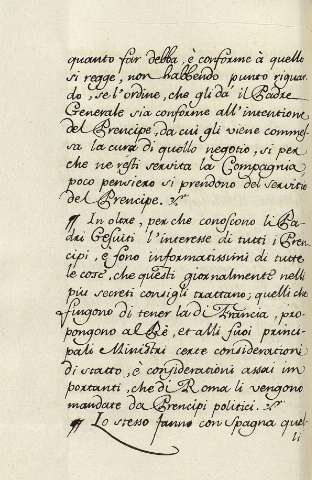 quanto far debba, è conforme à quello
si regge, non habbendo punto riguar
do, se l'ordine, che gli dà il Padre
Generale sia conforme all'intentione
del Prencipe, da cui gli viene commes
sa la cura di quello negotio, si per
che ne resti servita la Compagnia
poco pensiero si prendono del servitio
del Prencipe.
¶ In oltre, perche conoscono li Pa
dri Gesuiti l'interesse di tutti i Pren
cipi, e sono informatissimi di tutte
le cose, che questi giornalmente nelli
più secreti consigli trattano; quelli che
fingono di tener la di Francia, pro
pongono al Rè, et alli suoi princi
pali Ministri certe considerationi
di statto, è considerationi assai im
portanti, che di Roma li vengono
mandate da Prencipi politici.
¶ Lo stesso fanno con Spagna quel
li